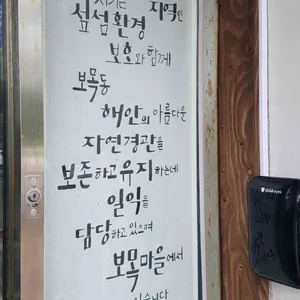 지역인
섶섬환경
보호와 함께
보목동
해안의 아름다운
자연경관을
보존하고 유지하는데
일익을
담당하고 있으며
보목마을에서
있습니다